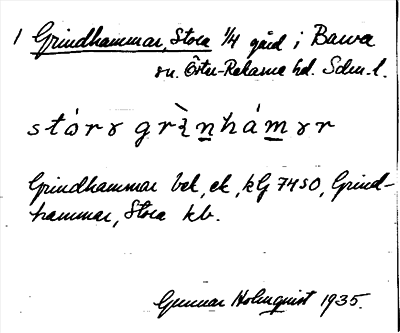 1 Grindhammar, Stora 1/4 gård i Bawa
sn. Öster-Rekarne hd. Sdm. l.
stórr grìnhámrr
Grindhammar bek, ek, kG 74 SO, Grind-
hammar, Stora kb.
Gunnar Holmquist 1935.